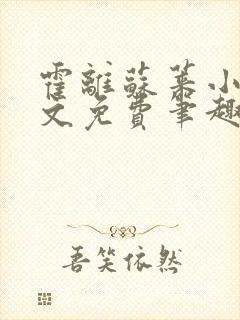 霍離蘇慕小
文免費筆趣
吾笑依然